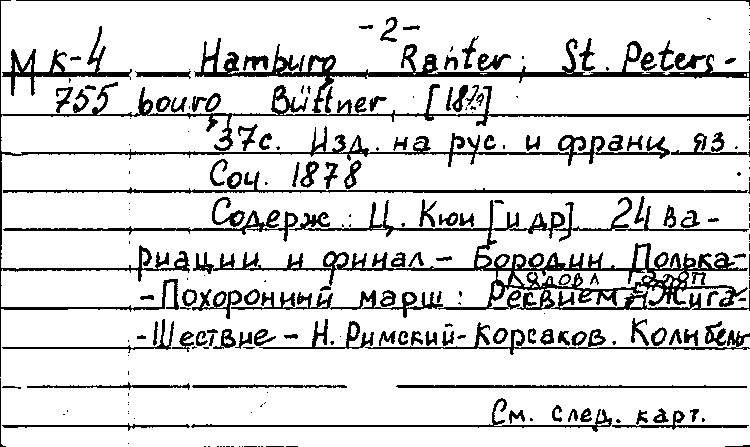 -2-
М К-4 Hamburg, Ranter; St. Peters-
755 bourg, Büttner, [1879]
37с. Изд. на рус. и франц. яз.
Соч. 1878
Содерж: Ц. Кюи [и др]. 24 ва-
риации и финал - Бородин. Полька-
-Похоронный марш: Реквием - Жига-
-Шествие - Н. Римский-Корсаков. Колыбель
См. след. карт.